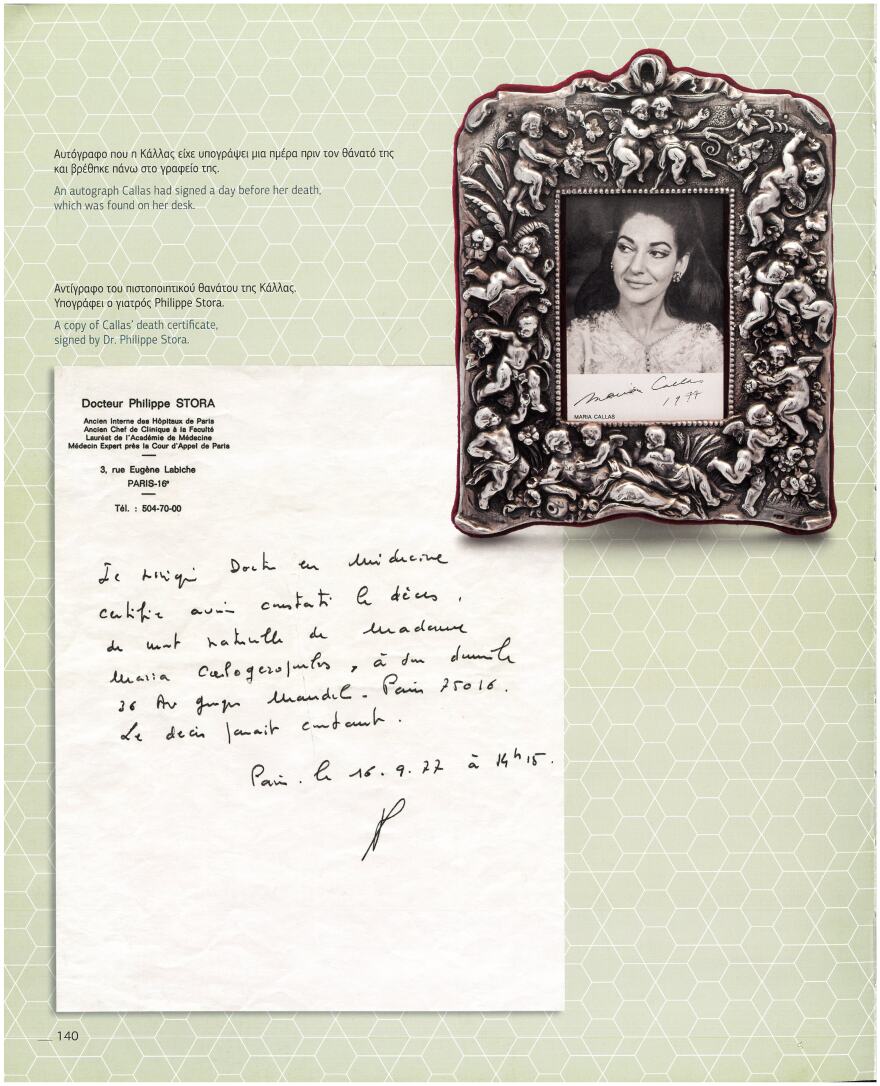 Αυτόγραφο που η Κάλλας είχε υπογράψει μια ημέρα πριν τον θάνατό της
και βρέθηκε πάνω στο γραφείο της.
An autograph Callas had signed a day before her death,
which was found on her desk.
Αντίγραφο του πιστοποιητικού θανάτου της Κάλλας.
Υπογράφει ο γιατρός Philippe Stora.
A copy of Callas' death certificate,
signed by Dr. Philippe Stora.
Maria Callas
1977
MARIA CALLAS
Docteur Philippe STORA
Ancien Interne des Hôpitaux de Paris
Ancien Chef de Clinique à la Faculté
Lauréat de l'Académie de Médecine
Médecin Expert près la Cour d'Appel de Paris
3, rue Eugène Labiche
PARIS-16e
Tél. : 504-70-00
Je soussigné Docteur en Médecine
certifie avoir constaté le décès,
de mort naturelle de Madame
Maria Calogeropoulos, à son domicile
36 Av Georges Mandel - Paris 75016.
Le décès paraît constant.
Paris. le 16.9.77 à 14h15.
140